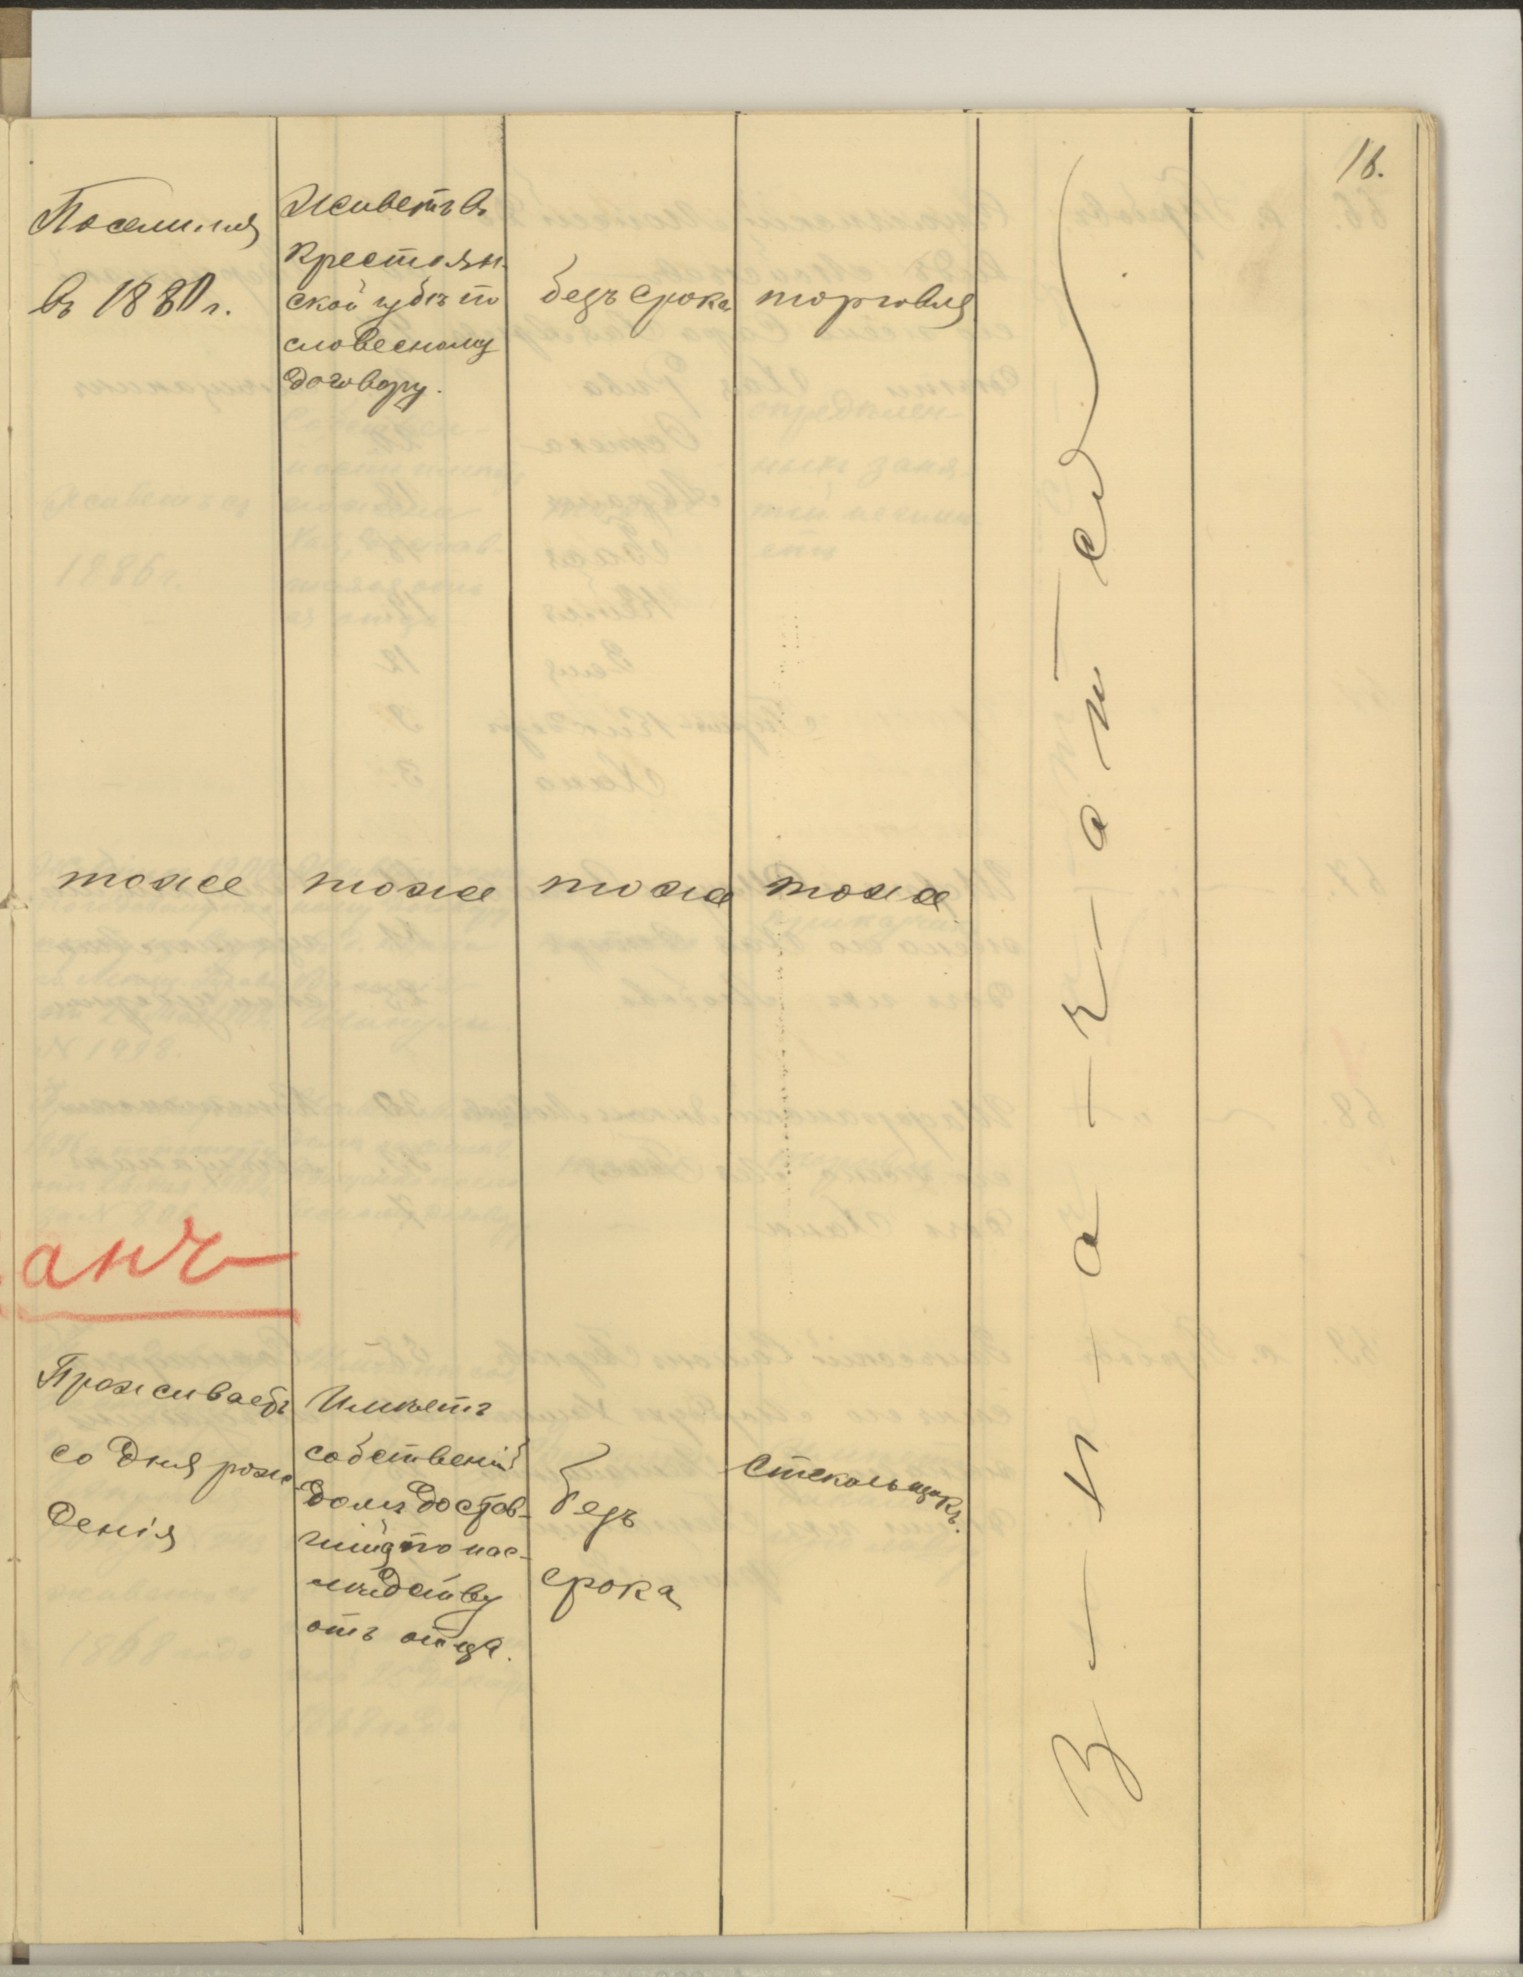 16.
Поселился
въ 1880 г.
Живетъ въ
крестьян-
ской избѣ по
словесному
договору.
безъ срока
торговля
тоже
тоже
тоже
тоже
анъ
Проживаетъ
со дня рож-
денія
Имѣетъ
собственый
домъ достав-
шійся по нас-
лѣдству
отъ отца.
безъ
срока
Стекольщикъ.